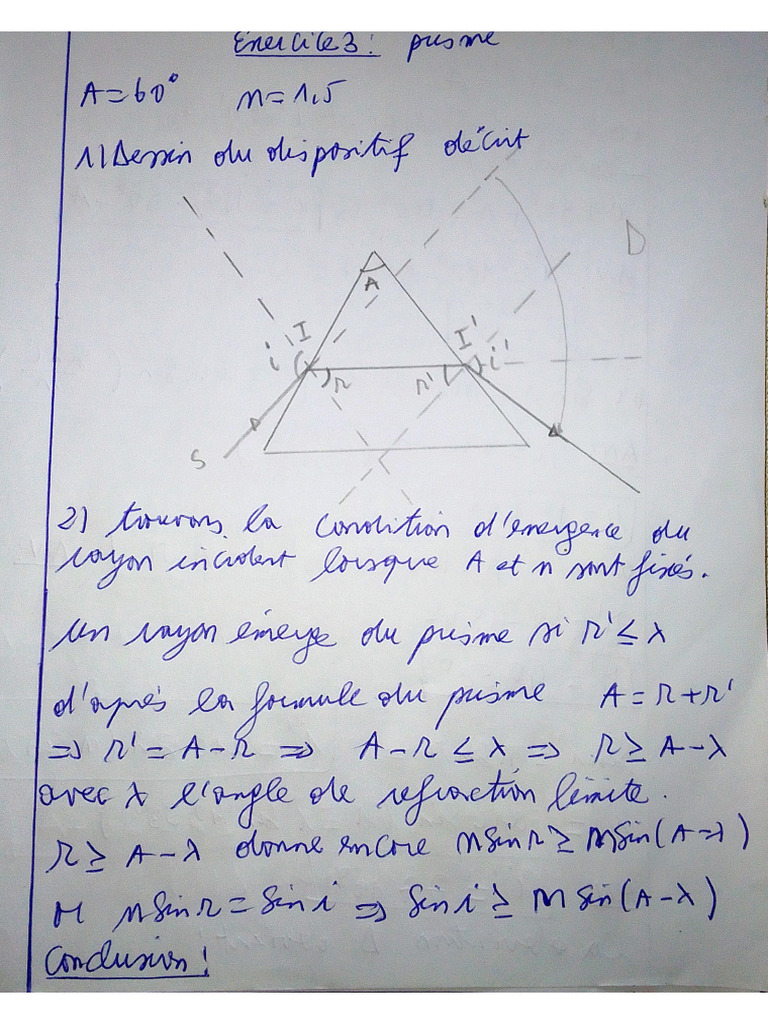 Exercice 3 : prisme
A = 60° n = 1,5
1) Dessin du dispositif décrit
D
A
I I'
i i'
r r'
S
2) trouvons la condition d'émergence du
rayon incident lorsque A et n sont fixés.
Un rayon émerge du prisme si r' ≤ λ
d'après la formule du prisme A = r + r'
⇒ r' = A - r ⇒ A - r ≤ λ ⇒ r ≥ A - λ
avec λ l'angle de refraction limite.
r ≥ A - λ donne encore n sin r ≥ n sin(A - λ)
or n sin r = sin i ⇒ sin i ≥ n sin(A - λ)
Conclusion !